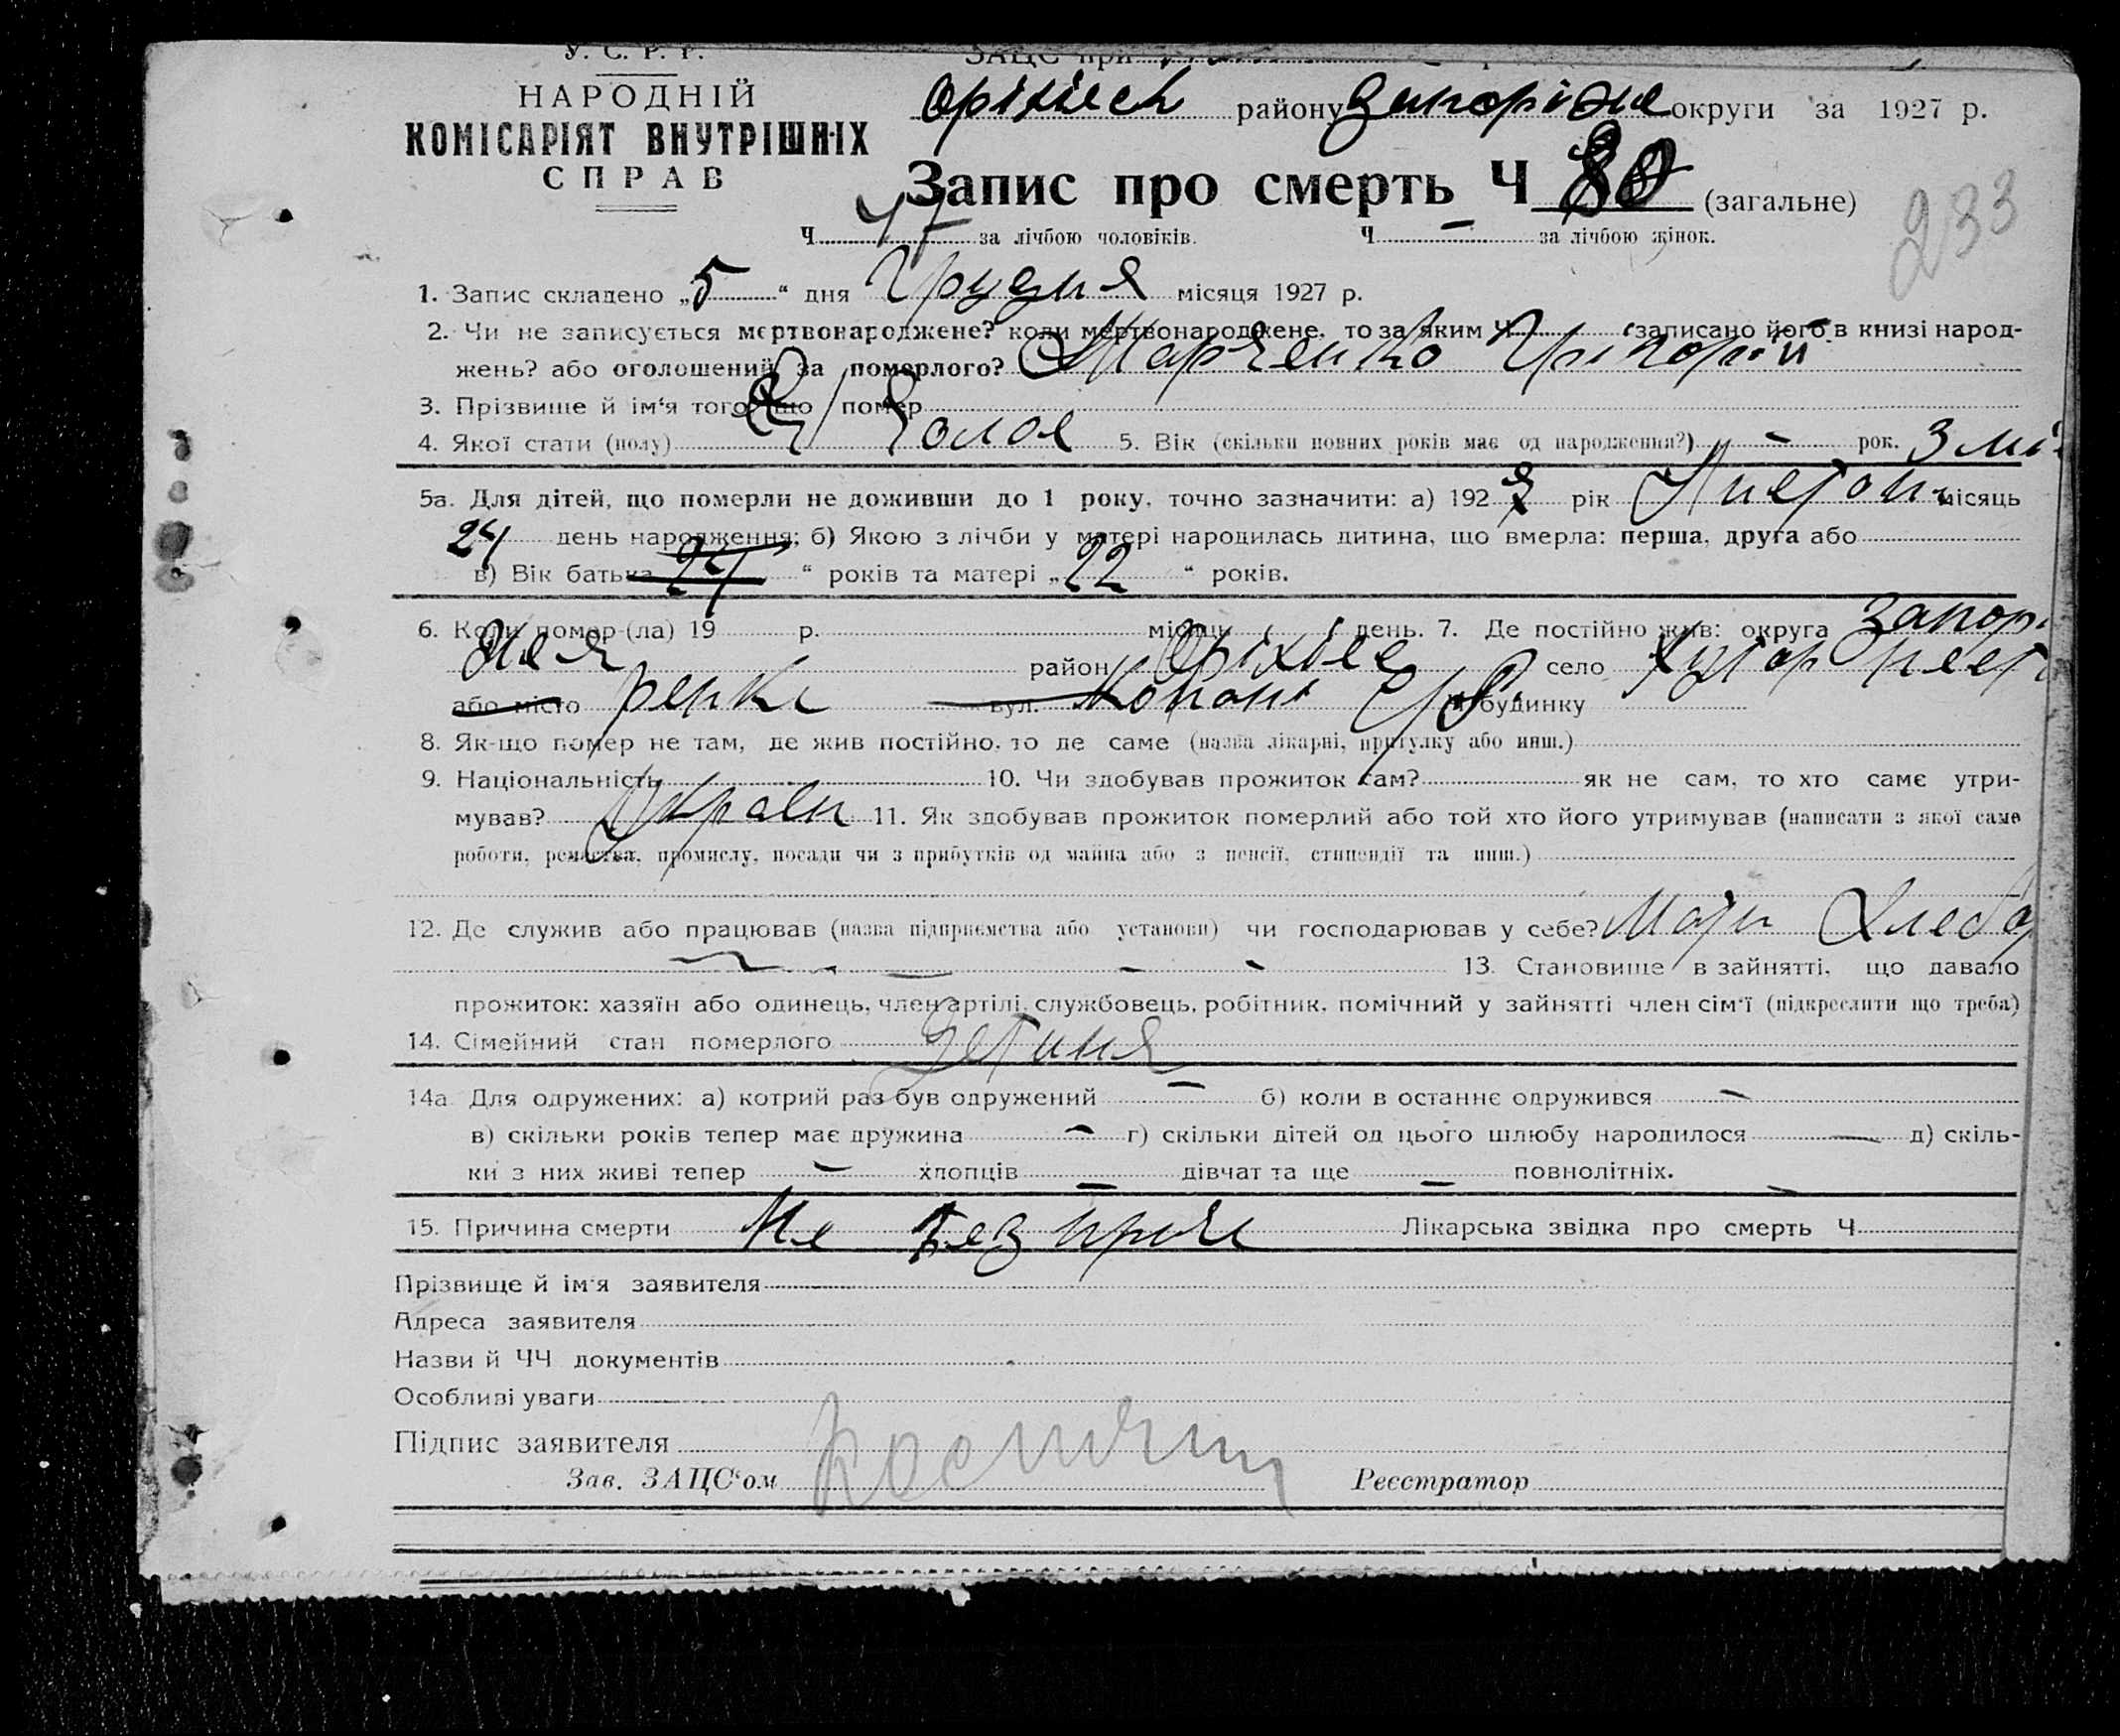 У. С. Р. Р.
НАРОДНІЙ
КОМІСАРІЯТ ВНУТРІШНІХ
СПРАВ
ЗАЦС при
Оріхівськ району Запоріжж округи за 1927 р.
Запис про смерть Ч 80 (загальне)
233
Ч 47 за лічбою чоловіків. Ч — за лічбою жінок.
1. Запис складено „5“ дня Грудня місяця 1927 р.
2. Чи не записується мертвонароджене? коли мертвонароджене, то за яким Ч записано його в книзі народ-
жень? або оголошений за померлого? Марченко Григорій
3. Прізвище й ім‘я того, що помер
4. Якої стати (полу) Чолов 5. Вік (скільки повних років має од народження?) — рок. 3 мі
5а. Для дітей, що померли не доживши до 1 року, точно зазначити: а) 1927 рік місяць
24 день народження; б) Якою з лічби у матері народилась дитина, що вмерла: перша, друга або
в) Вік батька 24 “ років та матері „22“ років.
6. Коли помер (ла) 19 р. місяць день. 7. Де постійно жив: округа Запор
район Оріхів село Хутор
або місто вул. Копані будинку
8. Як-що помер не там, де жив постійно, то де саме (назва лікарні, притулку або инш.)
9. Національність 10. Чи здобував прожиток сам? як не сам, то хто саме утри-
мував? Украін 11. Як здобував прожиток померлий або той хто його утримував (написати з якої саме
роботи, ремества, промислу, посади чи з прибутків од майна або з пенсії, стипендії та инш.)
12. Де служив або працював (назва підприємства або установи) чи господарював у себе? Мати Хлебор
13. Становище в зайнятті, що давало
прожиток: хазяїн або одинець, член артілі, службовець, робітник, помічний у зайнятті член сім‘ї (підкреслити що треба)
14. Сімейний стан померлого Детиня
14а Для одружених: а) котрий раз був одружений — б) коли в останнє одружився —
в) скільки років тепер має дружина — г) скільки дітей од цього шлюбу народилося — д) скіль-
ки з них живі тепер — хлопців — дівчат та ще — повнолітніх.
15. Причина смерти Лікарська звідка про смерть Ч
Прізвище й ім‘я заявителя
Адреса заявителя
Назви й ЧЧ документів
Особливі уваги
Підпис заявителя
Зав. ЗАЦС‘ом Реєстратор